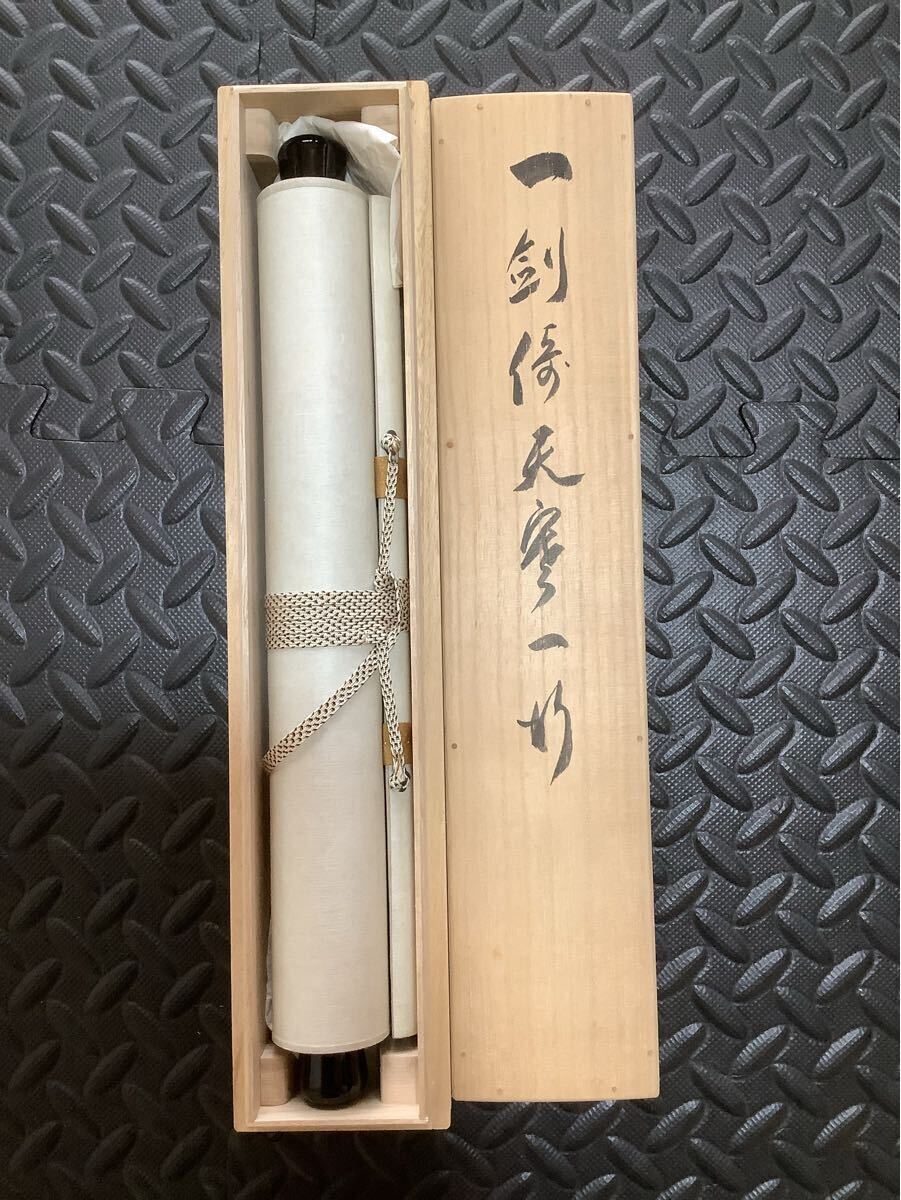 一剣倚天寒一行